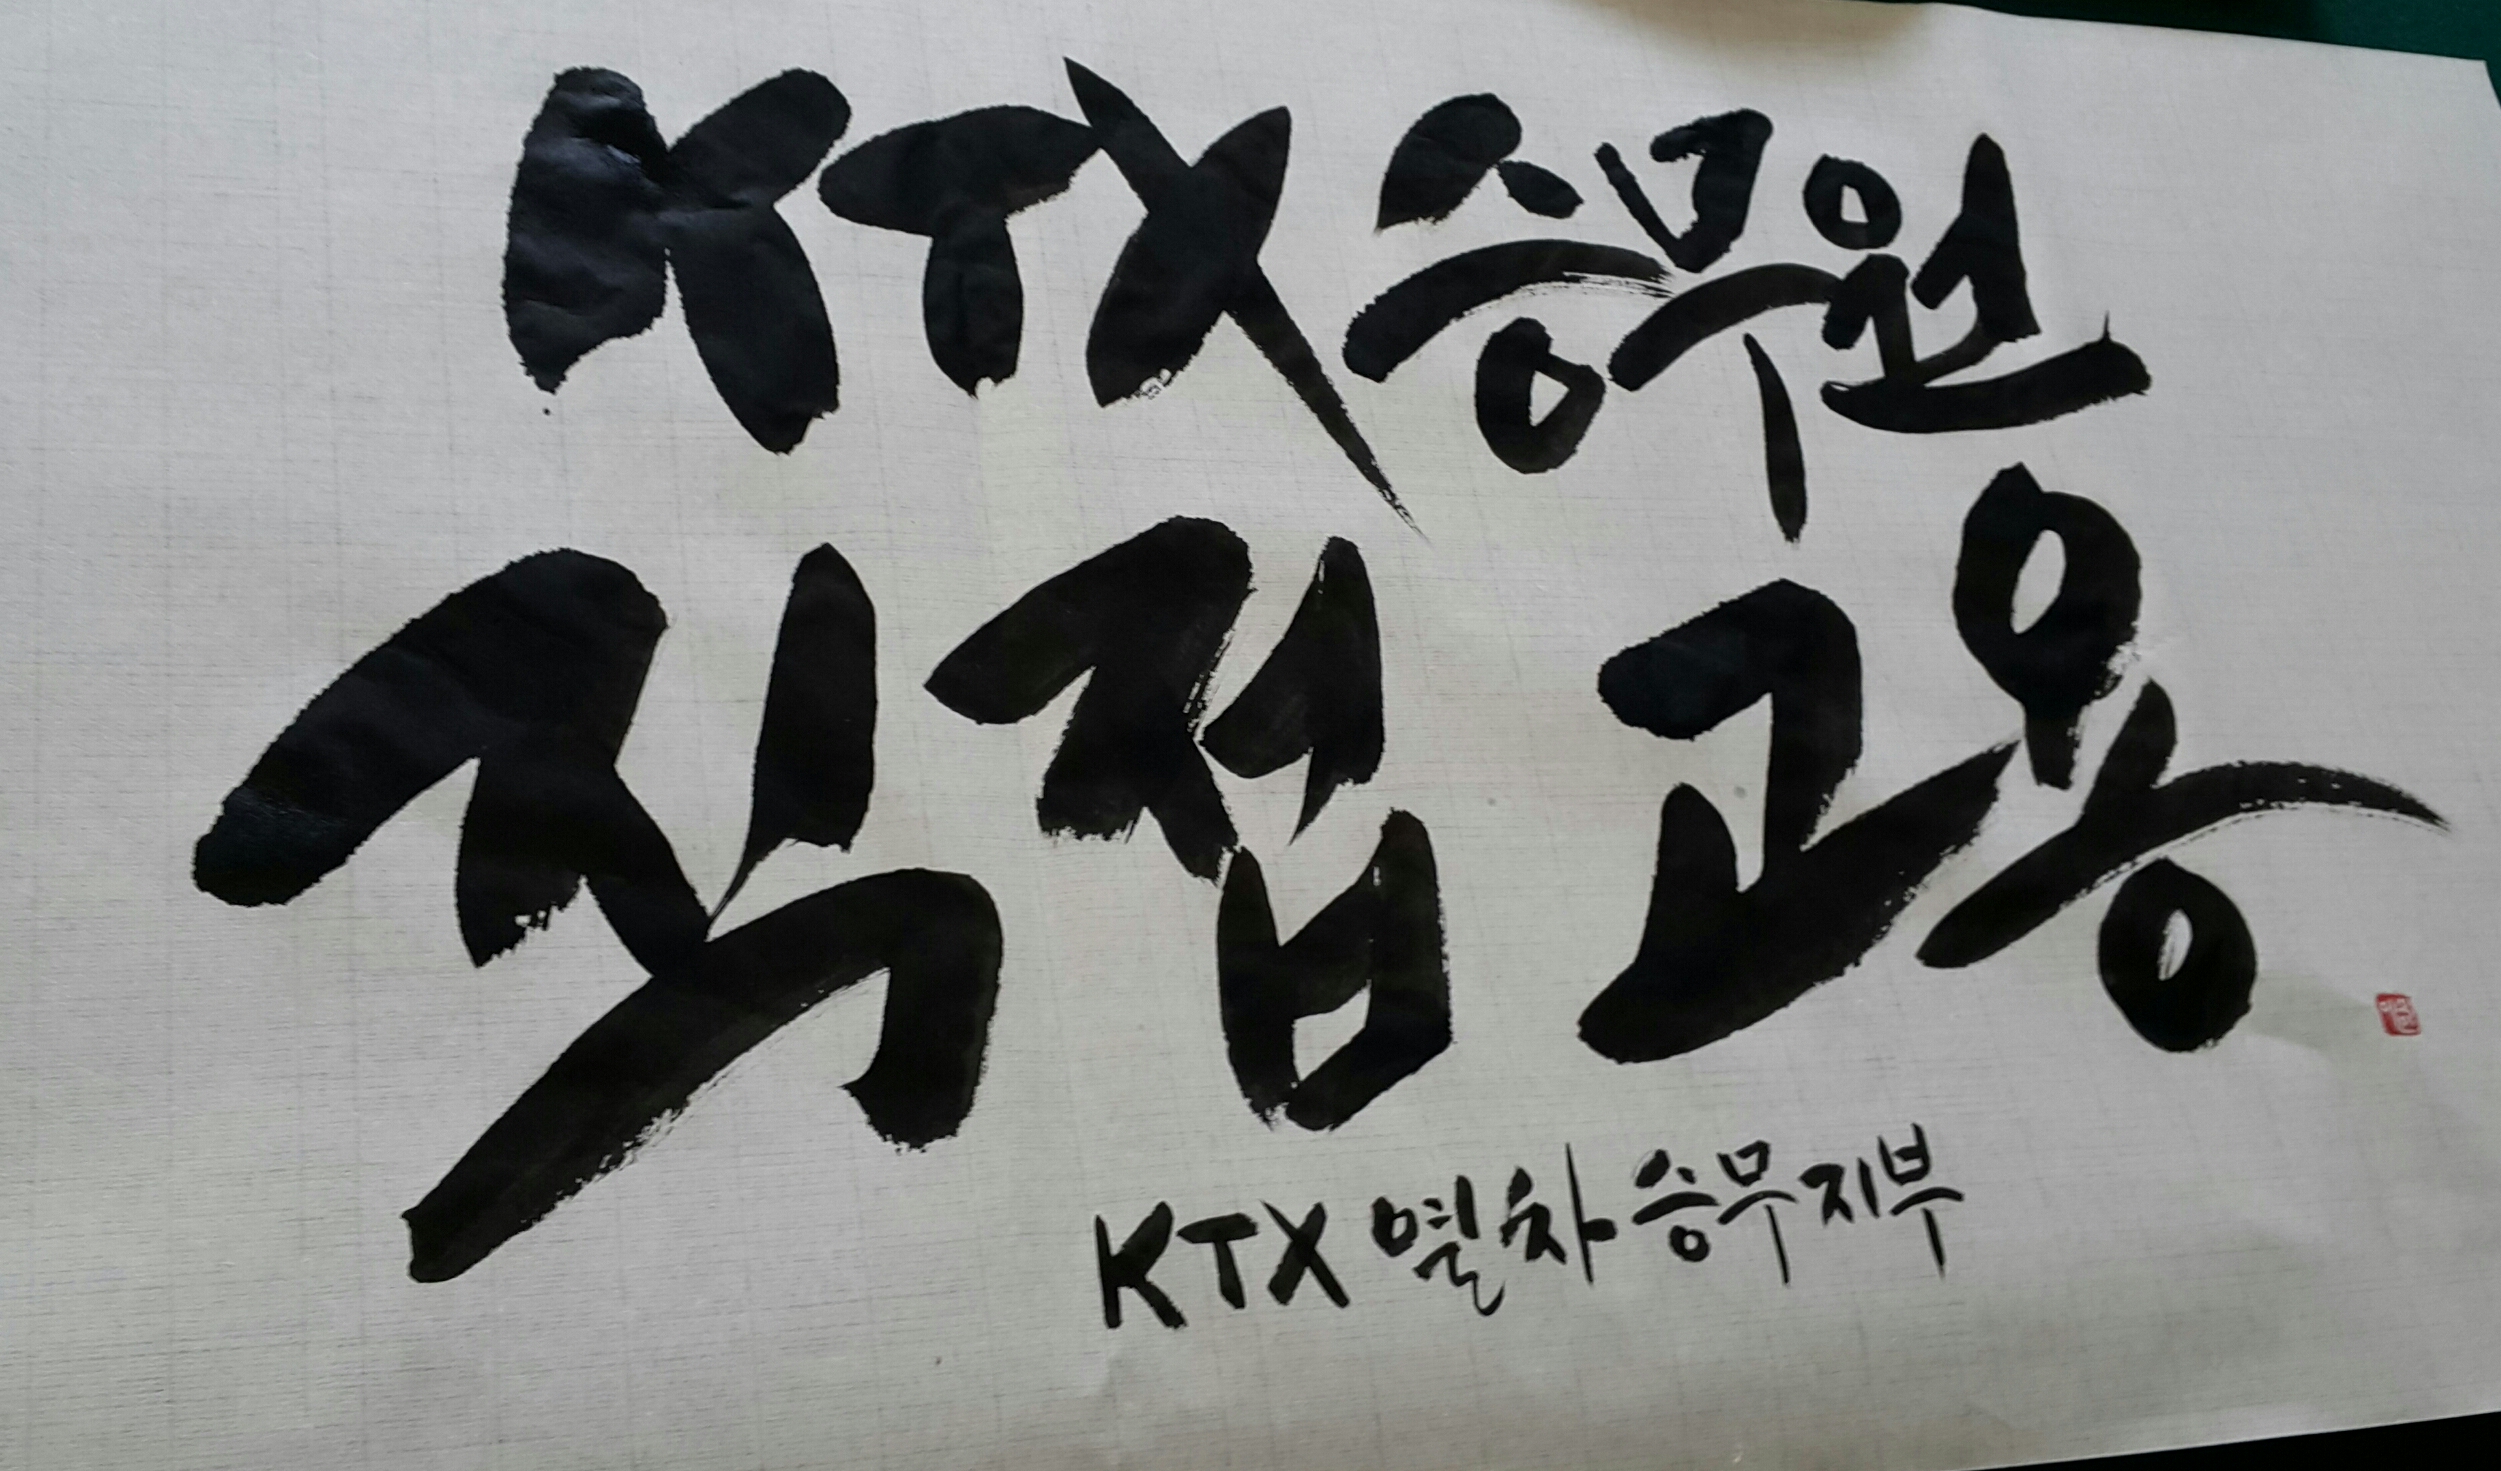 KTX 승무원
직접 고용
KTX 열차승무지부